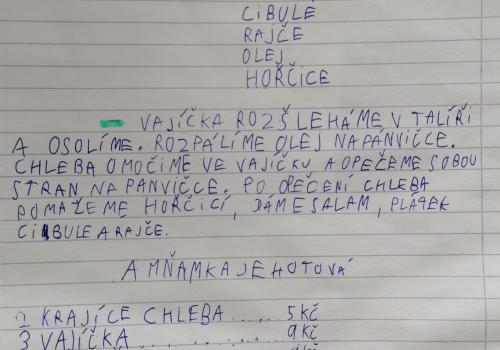 CIBULE
RAJČE
OLEJ
HOŘČICE
– VAJÍČKA ROZŠLEHÁME V TALÍŘI
A OSOLÍME. ROZPÁLÍME OLEJ NA PÁNVIČCE.
CHLEBA OMOČÍME VE VAJÍČKU A OPEČEME SOBOU
STRAN NA PÁNVIČCE. PO OPEČENÍ CHLEBA
POMAŽEME HOŘČICÍ, DÁME SALAM, PLÁTEK
CIBULE A RAJČE.
A MŇAMKA JE HOTOVÁ
2 KRAJÍCE CHLEBA ..... 5 KČ
3 VAJÍČKA ......... 9 KČ